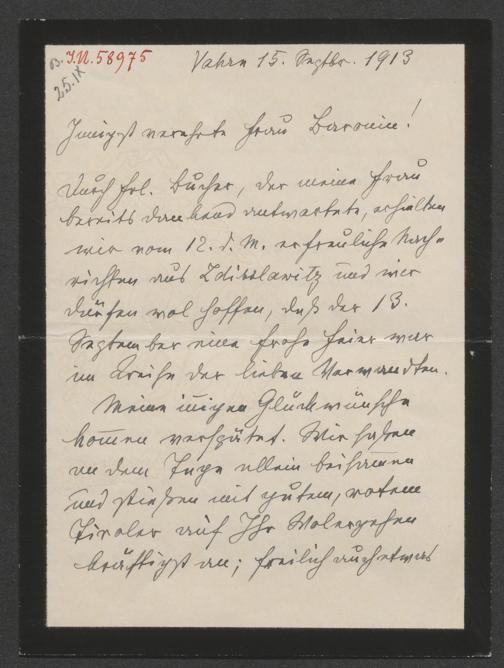 B. I.N. 58975
25.IX
Vahrn 15. Septbr. 1913
Innigst verehrte Frau Baronin!
Durch Frl. Bucher, der meine Frau
bereits dankend antwortete, erhielten
wir vom 12. d. M. erfreuliche Nach-
richten aus Zdisslawitz und wir
dürfen wol hoffen, daß der 13.
September eine frohe Feier war
im Kreise der lieben Verwandten.
Meine innigen Glückwünsche
kommen verspätet. Wir saßen
an dem Tage allein beisammen
und stießen mit gutem, rotem
Tiroler auf Ihr Wolergehen
kräftigst an; freilich auch etwas